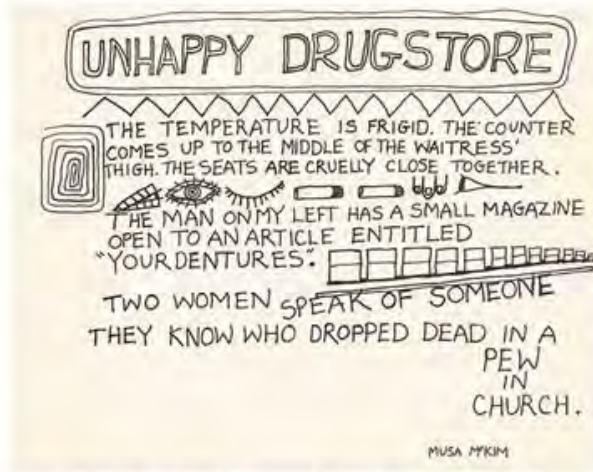 UNHAPPY DRUGSTORE
THE TEMPERATURE IS FRIGID. THE COUNTER
COMES UP TO THE MIDDLE OF THE WAITRESS'
THIGH. THE SEATS ARE CRUELLY CLOSE TOGETHER.
THE MAN ON MY LEFT HAS A SMALL MAGAZINE
OPEN TO AN ARTICLE ENTITLED
"YOUR DENTURES".
TWO WOMEN SPEAK OF SOMEONE
THEY KNOW WHO DROPPED DEAD IN A
PEW
IN
CHURCH.
MUSA McKIM